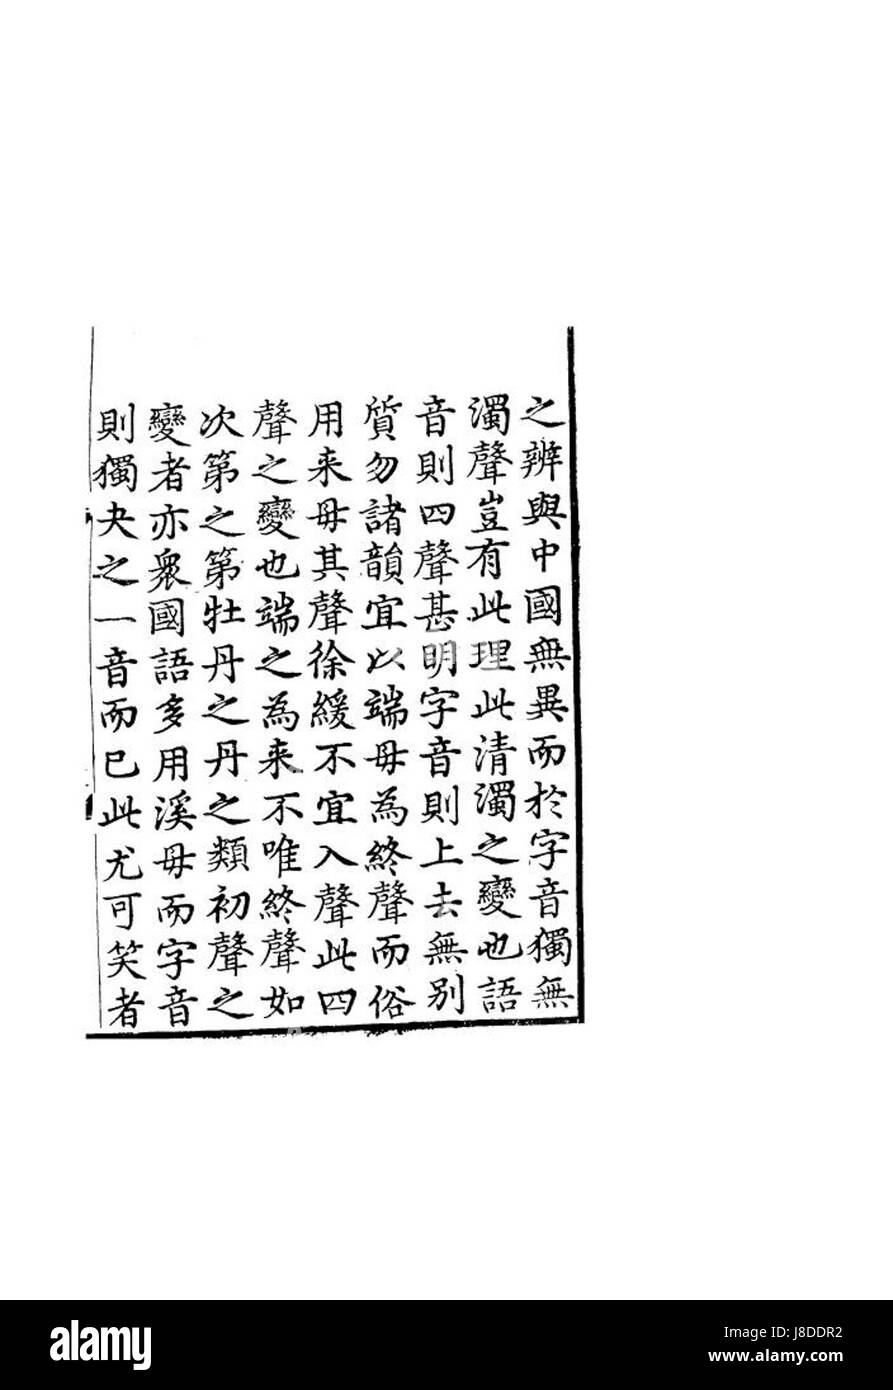 之辨與中國無異而於字音獨無
濁聲豈有此理此清濁之變也語
音則四聲甚明字音則上去無別
質勿諸韻宜以端母為終聲而俗
用来母其聲徐緩不宜入聲此四
聲之變也端之為来不唯終聲如
次第之第牡丹之丹之類初聲之
變者亦衆國語多用溪母而字音
則獨夬之一音而已此尤可笑者
alamy
Image ID: J8DDR2
www.alamy.com